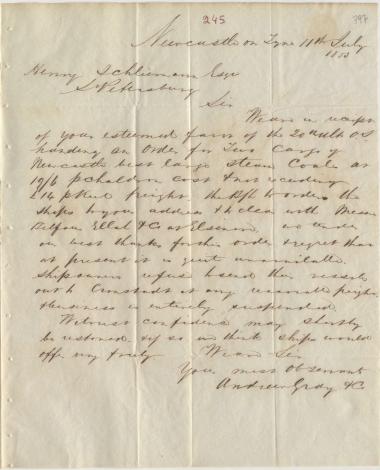 245
397
Newcastle on Tyne 11th July
1853
Henry Schliemann Esqe
St Petersburg
Sir
We are in receipt
of your esteemed favor of the 20th ulto O.S
handing an Order for Two Cargo of
Newcastle best large Steam Coals at
19/6 p chaldron cost & not exceeding
£14 p Keel freight, the to order the
Ships to your address & to clear with Messrs
Balfour Ellah & Co at Elsinore, we tender
our best thanks for the order & regret that
at present it is quite unavailable.
Shipowners refuse to send their vessels
out to Cronstadt at any reasonable freight
& business is entirely suspended
We trust confidence may shortly
be restored & if so we think ships would
offer very freely We are Sir
Your most Ob Servants
Andrew Gray & C